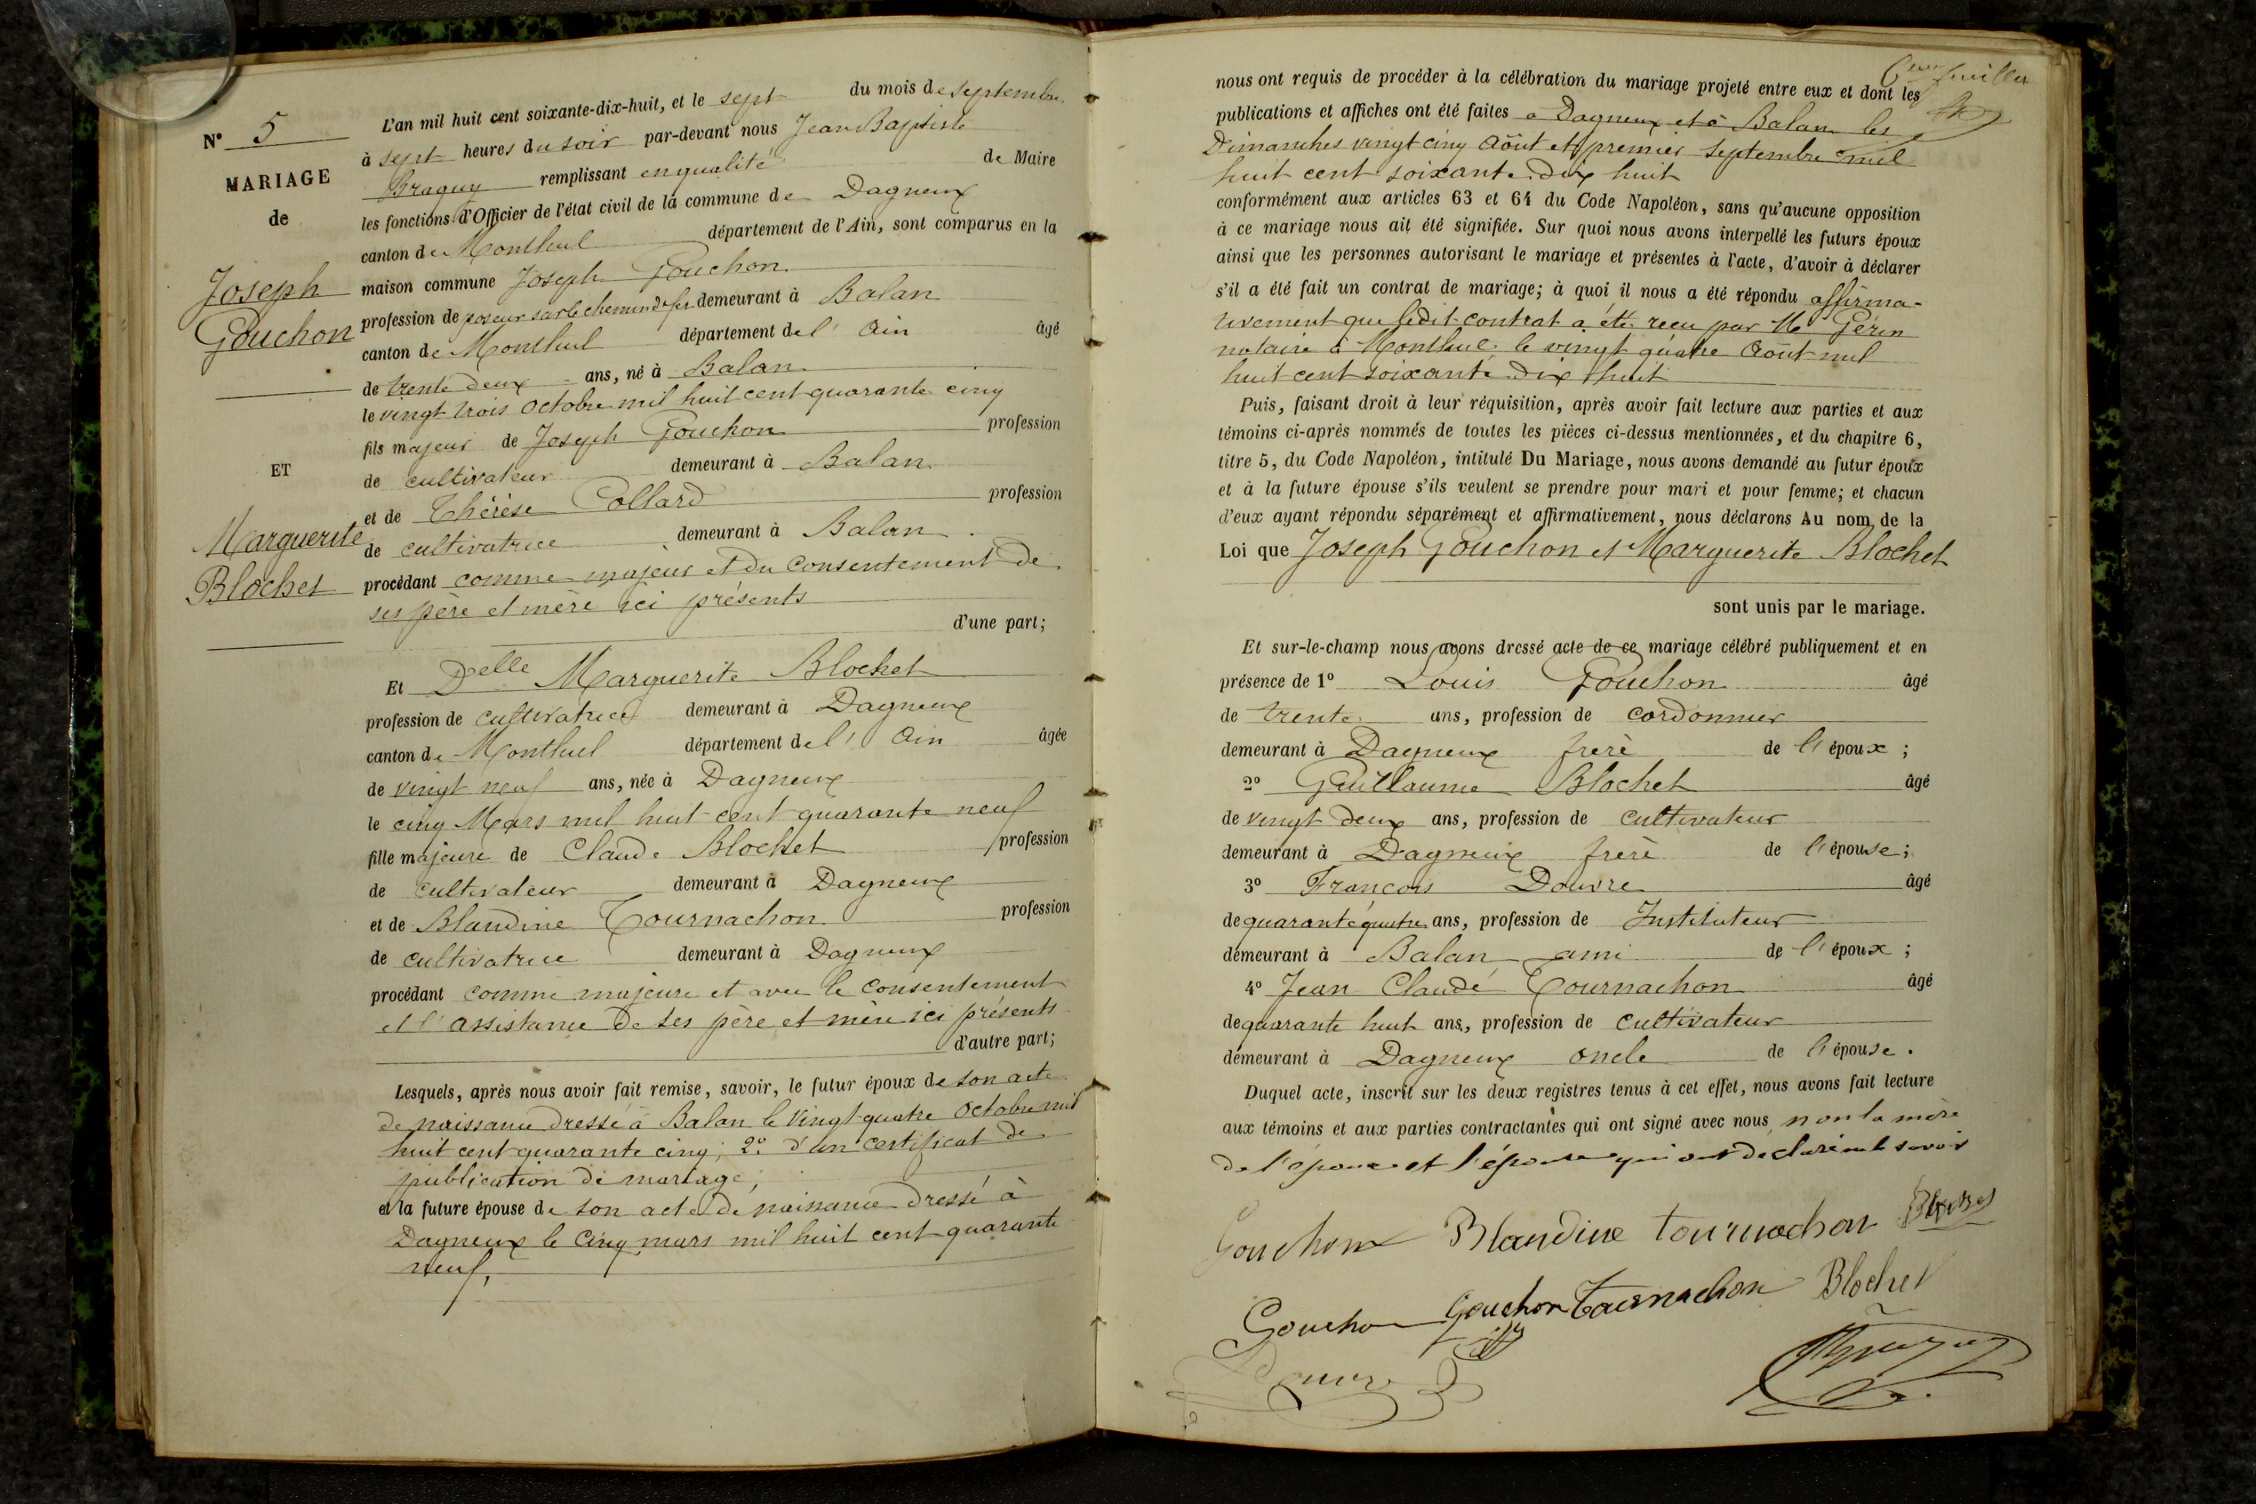 N° 5
MARIAGE
de
Joseph
Gouchon
ET
Marguerite
Blochet
L'an mil huit cent soixante-dix-huit, et le sept du mois de septembre
à sept heures du soir par-devant nous Jean Baptiste
Braguy remplissant en qualité de Maire
les fonctions d'Officier de l'état civil de la commune de Dagneux
canton de Montluel département de l'Ain, sont comparus en la
maison commune Joseph Gouchon
profession de poseur sur le chemin de fer demeurant à Balan
canton de Montluel département de l' Ain âgé
de trente deux ans, né à Balan
le vingt trois octobre mil huit cent quarante cinq
fils majeur de Joseph Gouchon profession
de cultivateur demeurant à Balan
et de Thérèse Collard profession
de cultivatrice demeurant à Balan.
procédant comme majeur et du consentement de
ses père et mère ici présents
d'une part;
Et Delle Marguerite Blochet
profession de cultivatrice demeurant à Dagneux
canton de Montluel département de l' Ain âgée
de vingt neuf ans, née à Dagneux
le cinq Mars mil huit cent quarante neuf
fille majeure de Claude Blochet profession
de cultivateur demeurant à Dagneux
et de Blandine Tournachon profession
de cultivatrice demeurant à Dagneux
procédant comme majeure et avec le consentement
et l'assistance de ses père et mère ici présents
d'autre part;
Lesquels, après nous avoir fait remise, savoir, le futur époux de son acte
de naissance dressé à Balan le vingt-quatre octobre mil
huit cent quarante cinq; 2° d'un certificat de
publication de mariage;
et la future épouse de son acte de naissance dressé à
Dagneux le cinq mars mil huit cent quarante
neuf,
feuillet
nous ont requis de procéder à la célébration du mariage projeté entre eux et dont les
publications et affiches ont été faites à Dagneux et à Balan les
Dimanches vingt cinq août et premier septembre mil
huit cent soixante dix huit
conformément aux articles 63 et 64 du Code Napoléon, sans qu'aucune opposition
à ce mariage nous ait été signifiée. Sur quoi nous avons interpellé les futurs époux
ainsi que les personnes autorisant le mariage et présentes à l'acte, d'avoir à déclarer
s'il a été fait un contrat de mariage; à quoi il nous a été répondu affirma-
tivement que ledit contrat a été reçu par Me Gérin
notaire à Montluel le vingt quatre août mil
huit cent soixante dix huit
Puis, faisant droit à leur réquisition, après avoir fait lecture aux parties et aux
témoins ci-après nommés de toutes les pièces ci-dessus mentionnées, et du chapitre 6,
titre 5, du Code Napoléon, intitulé Du Mariage, nous avons demandé au futur époux
et à la future épouse s'ils veulent se prendre pour mari et pour femme; et chacun
d'eux ayant répondu séparément et affirmativement, nous déclarons Au nom de la
Loi que Joseph Gouchon et Marguerite Blochet
sont unis par le mariage.
Et sur-le-champ nous avons dressé acte de ce mariage célébré publiquement et en
présence de 1° Louis Gouchon âgé
de trente ans, profession de cordonnier
demeurant à Dagneux frère de l'époux;
2° Guillaume Blochet âgé
de vingt deux ans, profession de cultivateur
demeurant à Dagneux frère de l'épouse;
3° François Douvre âgé
de quarante quatre ans, profession de Instituteur
demeurant à Balan ami de l'époux;
4° Jean Claude Tournachon âgé
de quarante huit ans, profession de cultivateur
demeurant à Dagneux oncle de l'épouse.
Duquel acte, inscrit sur les deux registres tenus à cet effet, nous avons fait lecture
aux témoins et aux parties contractantes qui ont signé avec nous non la mère
de l'époux et l'épouse qui ont déclaré ne le savoir
Gouchon Blandine tournachon Blochet
Gouchon Gouchon Tournachon Blochet
Douvre Braguy